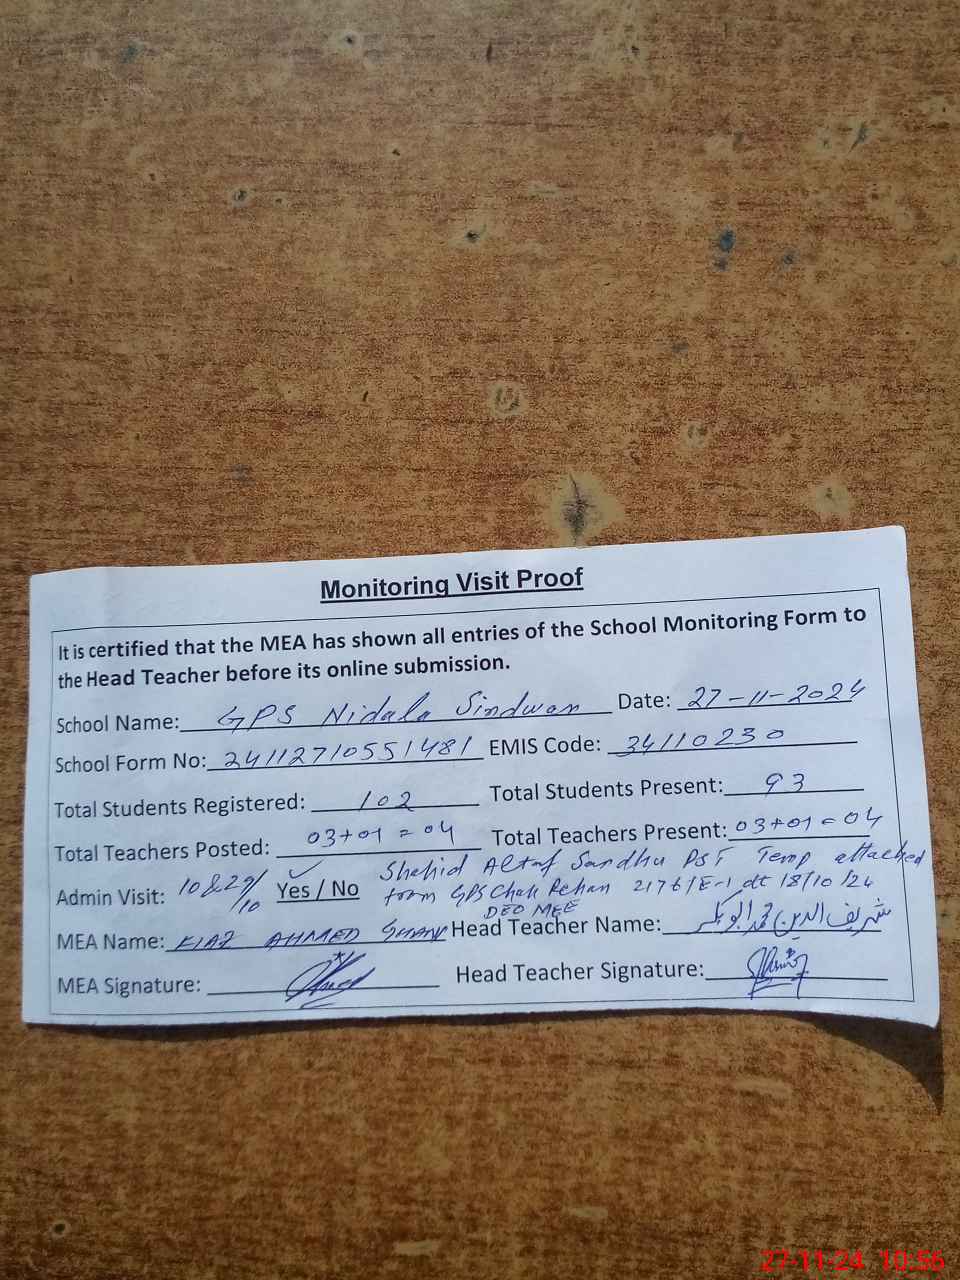 Monitoring Visit Proof
It is certified that the MEA has shown all entries of the School Monitoring Form to
the Head Teacher before its online submission.
School Name: GPS Nidala Sindwan Date: 27-11-2024
School Form No: 24112710551481 EMIS Code: 34110230
Total Students Registered: 102 Total Students Present: 93
Total Teachers Posted: 03+01=04 Total Teachers Present: 03+01=04
Shahid Altaf Sandhu PST Temp attached
Admin Visit: 10&29/10 Yes / No form GPS Chak Rehan 2176/E-1 dt 18/10/24
DEO MEE
MEA Name: AHMED Head Teacher Name: شریف الدین
MEA Signature: Head Teacher Signature:
27-11-24 10:56